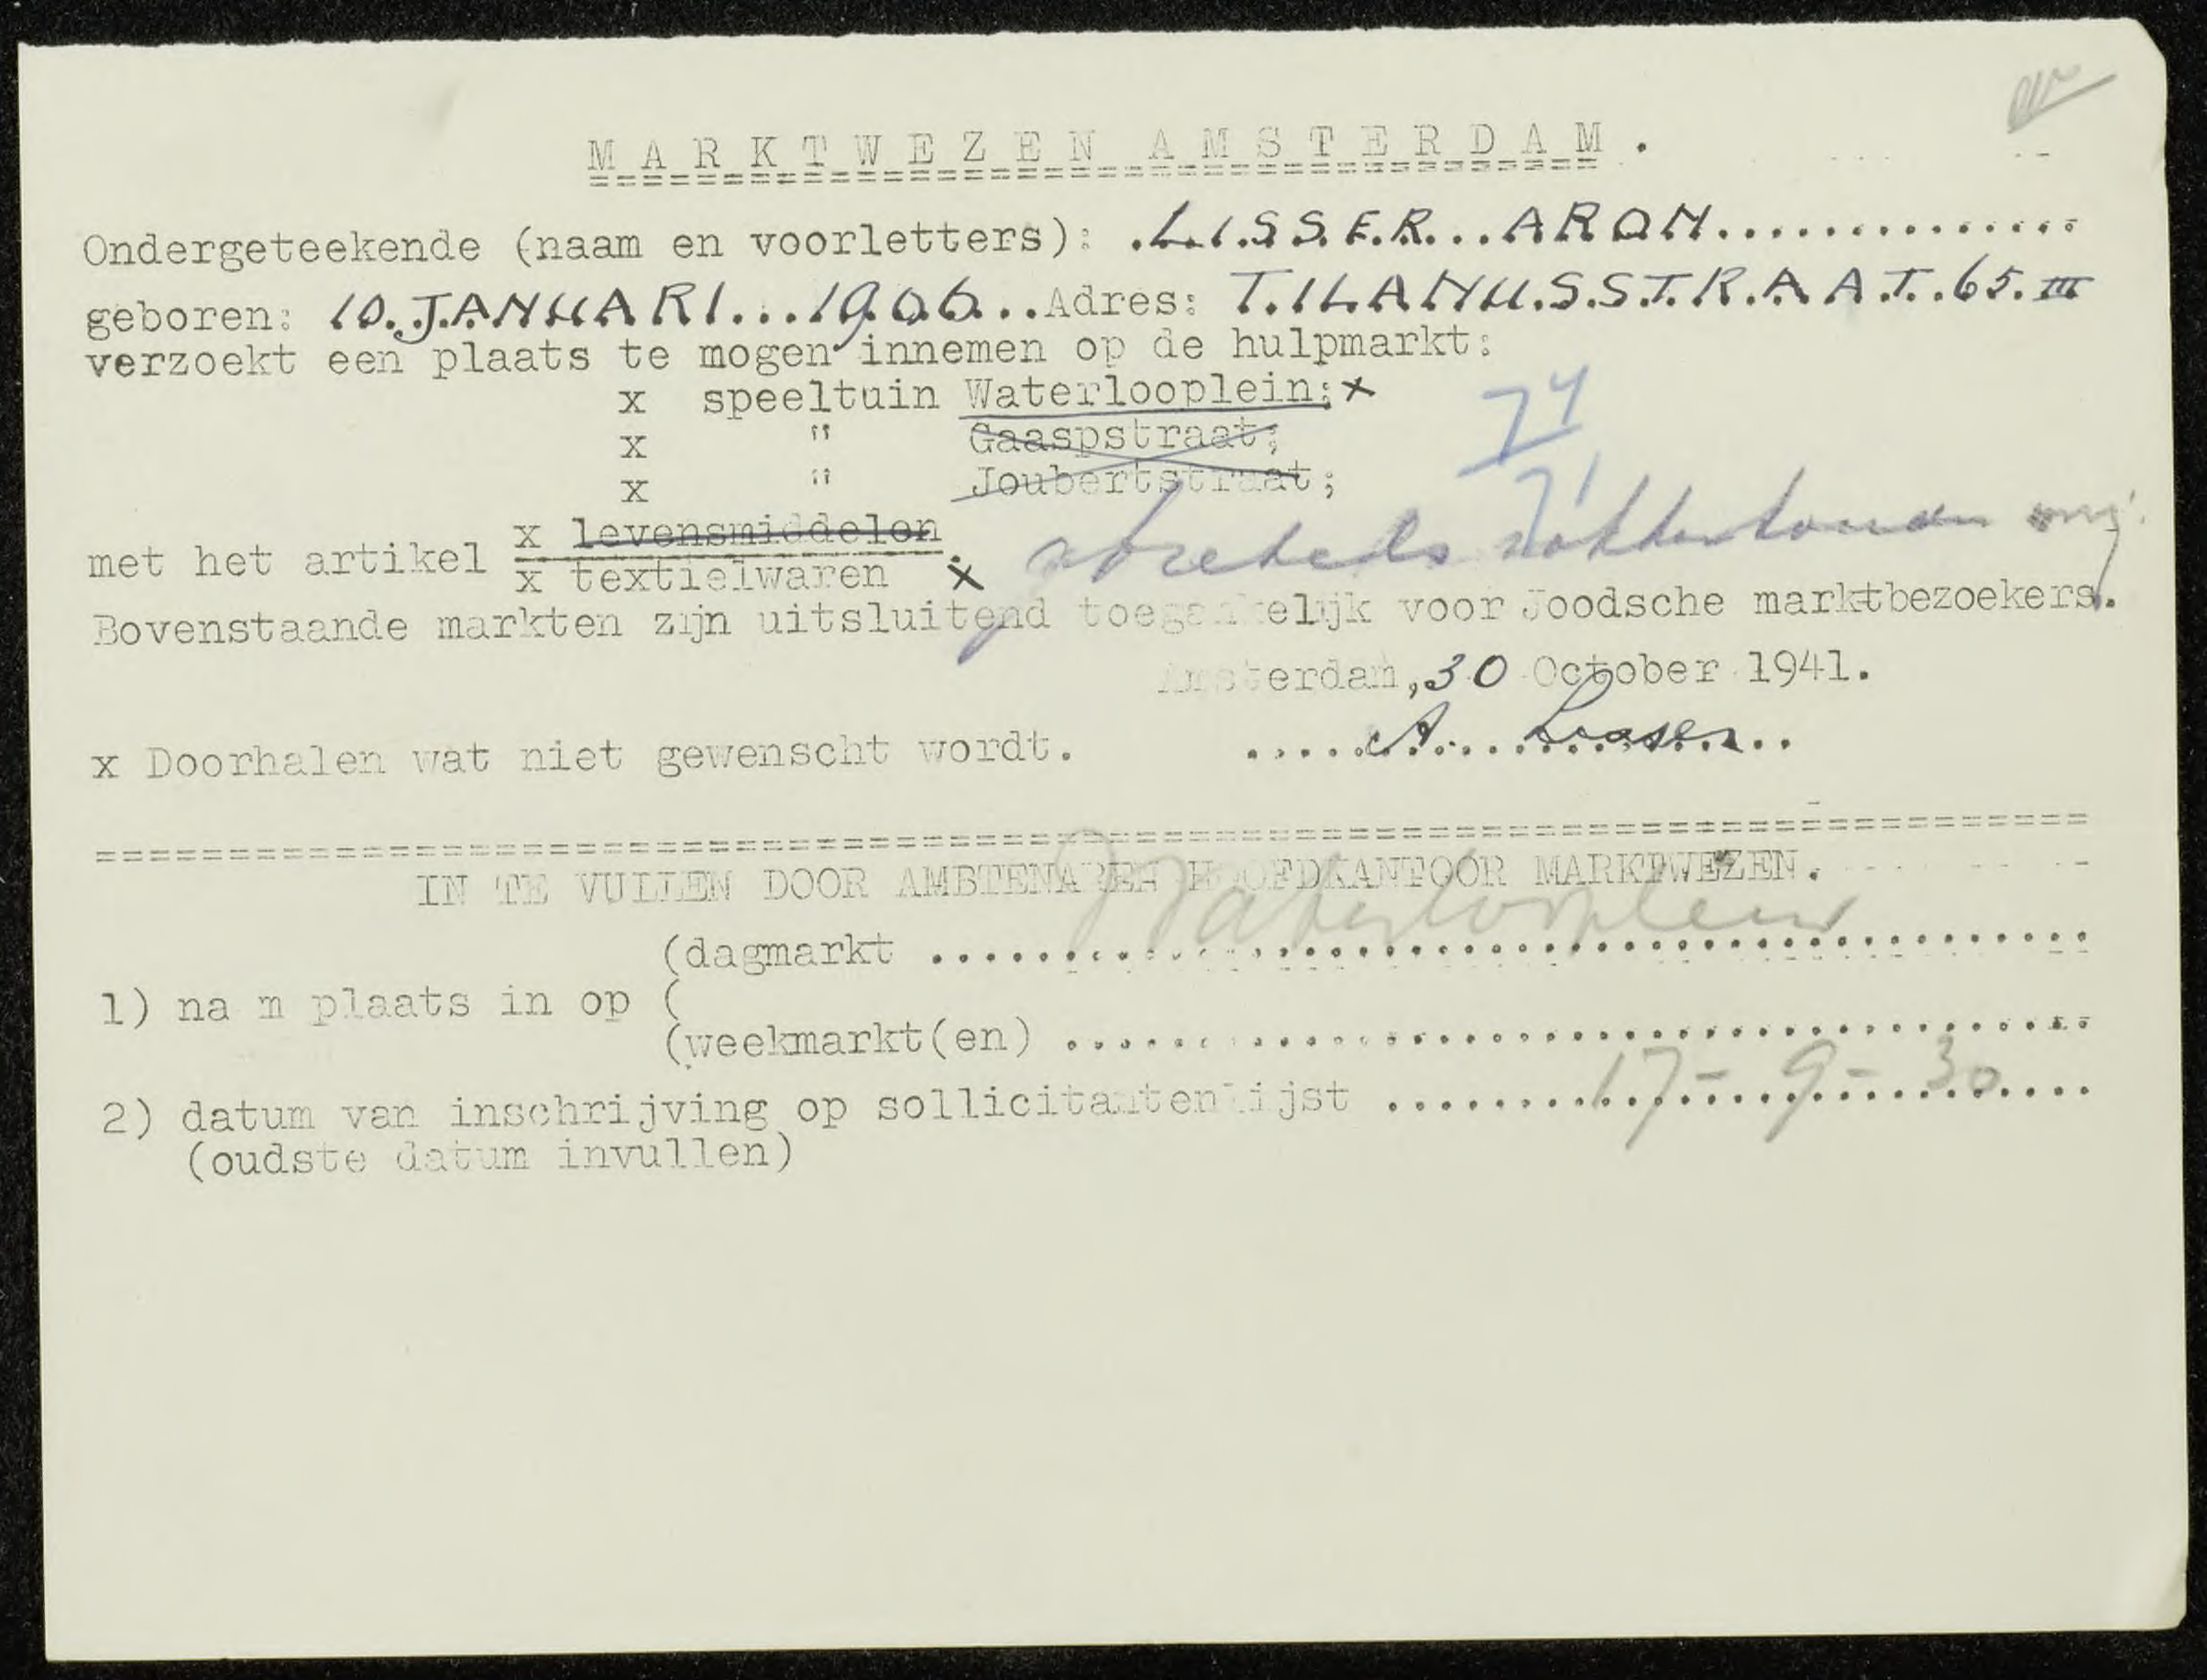 MARKTWEZEN AMSTERDAM.
Ondergeteekende (naam en voorletters): LISSER ARON
geboren: 10 JANUARI 1906 Adres: TILANUSSTRAAT 65 III
verzoekt een plaats te mogen innemen op de hulpmarkt:
x speeltuin Waterlooplein; x
x " Gaaspstraat;
x " Joubertstraat;
74
71
met het artikel x levensmiddelen
x textielwaren . x
Bovenstaande markten zijn uitsluitend toegankelijk voor Joodsche marktbezoekers.
Amsterdam, 30 October 1941.
x Doorhalen wat niet gewenscht wordt. A. Lisser
IN TE VULLEN DOOR AMBTENAREN HOOFDKANTOOR MARKTWEZEN.
(dagmarkt Waterlooplein
1) nam plaats in op (
(weekmarkt(en)
2) datum van inschrijving op sollicitantenlijst 17-9-30
(oudste datum invullen)